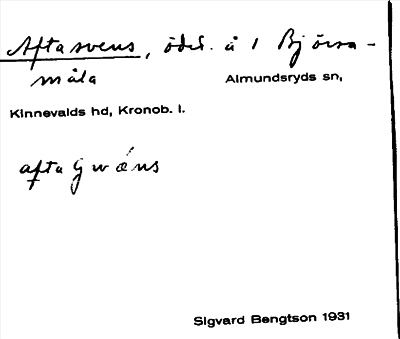 Aftasvens, öde. å 1 Björsa-
måla Almundsryds sn,
Kinnevalds hd, Kronob. l.
afta
Sigvard Bengtson 1931